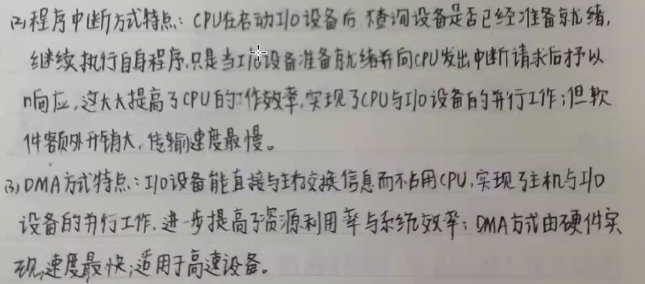 (2)程序中断方式特点：CPU在启动I/O设备后,不查询设备是否已经准备就绪,
继续执行自身程序,只是当I/O设备准备就绪并向CPU发出中断请求后才予以
响应,这大大提高了CPU的工作效率,实现了CPU与I/O设备的并行工作；但软
件额外开销大,传输速度最慢。
(3)DMA方式特点：I/O设备能直接与主存交换信息而不占用CPU,实现了主机与I/O
设备的并行工作,进一步提高了资源利用率与系统效率；DMA方式由硬件实
现,速度最快；适用于高速设备。